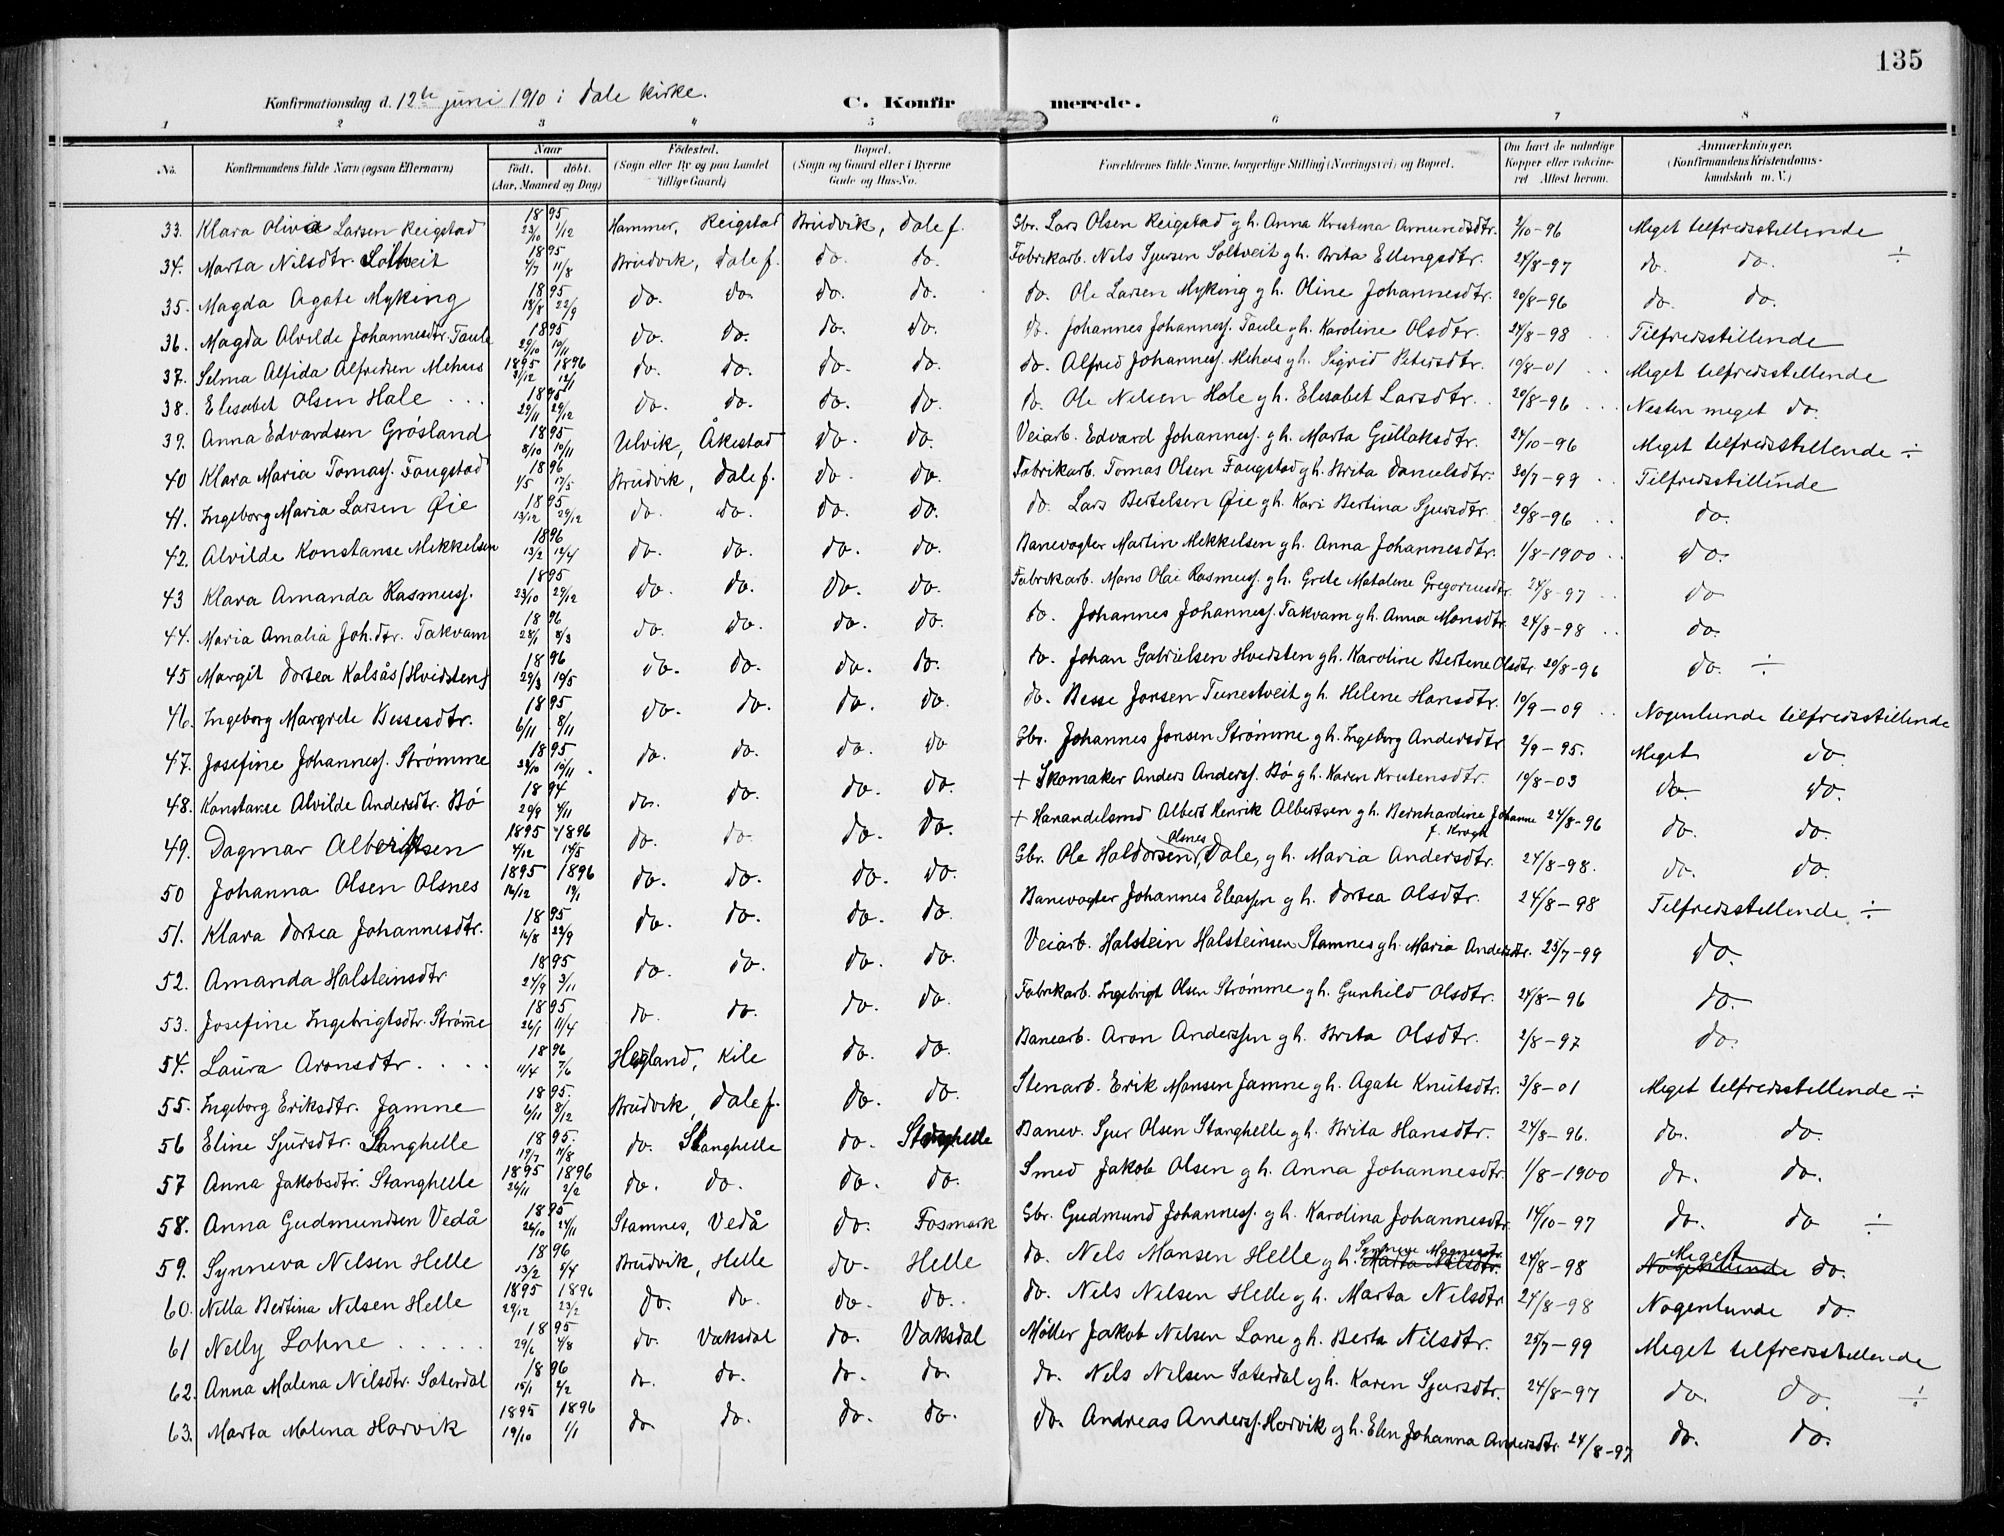 135
Konfirmationsdag d. 12te juni 1910 i Dale kirke. C. Konfirmerede.
1 2 3 4 5 6 7 8
No. Konfirmandens fulde Navn (ogsaa Efternavn) Naar født. døbt. (Aar, Maaned og Dag) Fødested. (Sogn eller By og paa Landet tillige Gaard) Bopæl. (Sogn og Gaard eller i Byerne Gade og Hus-No. Forældrenes fulde Navne, borgerlige Stilling (Næringsvei) og Bopæl. Om havt de naturlige Kopper eller vakcineret Attest herom. Anmærkninger. (Konfirmandens Kristendomskundskab m. V.)
33. Klara Oliva Larsen Reigstad 1895 23/10 1/12 Hammer, Reigstad Brudvik, Dale f. Gbr. Lars Olsen Reigstad gh. Anna Kristina Amundsdtr. 2/10-96 Meget tilfredsstillende
34. Marta Nilsdtr. Soltveit 1895 4/7 11/8 Brudvik, Dale f. do. do. Fabrikarb. Nels Sjursen Soltveit gh. Brita Ellingsdtr. 24/8-97 do. do. ÷
35. Magda Agate Myking 1895 18/8 22/9 do. do. do. do. do. Ole Larsen Myking gh. Oline Johannesdtr. 20/8-96 do. do.
36. Magda Alvilde Johannesdtr. Taule 1895 29/10 10/11 do. do. do. do. do. Johannes Johanness. Taule gh. Karoline Olsdtr. 24/8-98 Tilfredsstillende
37. Selma Alfida Alfredsen Mehus 1895 1896 31/12 12/1 do. do. do. do. do. Alfred Johanness. Mehus gh. Sigrid Petersdtr. 19/8-01 Meget tilfredsstillende
38. Elisabet Olsen Hole . . . 1895 29/11 29/12 do. do. do. do. do. Ole Nelsen Hole gh. Elisabet Larsdtr. 20/8-96 . . . Nesten meget do.
39. Anna Edvardsen Grøsland 1895 8/10 10/11 Ulvik, Åkestad do. do. Veiarb. Edvard Johanness. gh. Marta Gullaksdtr. 24/10-96 Meget tilfredsstillende ÷
40 Klara Maria Tomass. Faugstad 1896 1/5 17/5 Brudvik, Dale f. do. do. Fabrikarb. Tomas Olsen Faugstad gh. Brita Danielsdtr. 30/7-99 . . Tilfredsstillende
41. Ingeborg Maria Larsen Øie 1895 13/12 29/12 do. do. do. do. do. Lars Bertelsen Øie gh. Kari Bertina Sjursdtr. 20/8-96 . . do.
42. Alvilde Konstanse Mikkelsen 1896 13/2 12/4 do. do. do. do. Banevogter Martin Mikkelsen gh. Anna Johannesdtr. 1/8-1900 . . do.
43 Klara Amanda Rasmuss. 1895 23/10 29/12 do. do. do. do. Fabrikarb. Mons Olai Rasmuss. gh. Grete Matalene Gregoriusdtr. 24/8-97 . . do
44. Maria Amalia Joh.dtr. Takvam 1896 28/1 8/3 do. do. do. do. do. Johannes Johanness. Takvam gh. Anna Monsdtr. 24/8-98 . . do.
45 Margit Dortea Kalsås (Hvidsten) 1896 29/3 10/5 do. do. do. do. do. Johan Gabrielsen Hvidsten gh. Karoline Bertine Olsdtr. 20/8-96 do. ÷
46. Ingeborg Margrete Bessesdtr. 1895 6/11 8/11 do. do. do. do. do. Besse Jonsen Tunestveit gh. Helene Hansdtr. 10/9-09 . . Nogenlunde tilfredsstillende
47. Josefine Johanness. Strømme 1895 24/10 10/11 do. do. do. do Gbr. Johannes Jonsen Strømme gh. Ingeborg Andersdtr. 2/9-95. Meget do.
48. Konstanse Alvilde Andersdtr. Bø 1894 29/9 4/11 do. do. do. do. + Skomaker Anders Anderss. Bø gh. Karen Kristensdtr. 19/8-03 do. do.
49. Dagmar Albertsen 1895 1896 4/12 14/5 do. do. do. do. + Hanandelsmd Albert Henrik Albertsen gh. Bernhardine Johanne f. Krogh 24/8-96 do. do.
50 Johanna Olsen Olsnes 1895 1896 16/12 19/1 do. do. do. do. Gbr. Ole Haldorsen Olsnes, Dale, gh. Maria Andersdtr. 24/8-98. do. do.
51. Klara Dortea Johannesdtr. 1895 16/8 22/9 do. do. do. do. Banevogter Johannes Eliassen gh. Dortea Olsdtr. 24/8-98 Tilfredsstillende ÷
52. Amanda Halsteinsdtr 1895 24/9 3/11 do. do. do. do. Veiarb. Halstein Halsteinsen Stamnes gh. Maria Andersdtr. 25/7-99 do.
53. Josefine Ingebrigtsdtr. Strømme 1895 26/1 11/4 do. do. do. do. Fabrikarb. Ingebrigt Olsen Strømme gh. Gunhild Olsdtr. 24/8-96 do.
54. Laura Aronsdtr . . . . 1896 11/4 7/6 Hegland, Kile do. do. Banearb. Aron Anderssen gh. Brita Olsdtr. 2/8-97 do.
55. Ingeborg Eriksdtr. Jamne 1895. 6/11 8/12 Brudvik, Dale f. do. do. Stenarb. Erik Monsen Jamne gh. Agate Knutsdtr. 3/8-01 Meget tilfredsstillende ÷
56 Eline Sjursdtr. Stanghelle 1895. 19/7 11/8 do. Stanghelle do. Stanghelle Banev. Sjur Olsen Stanghelle gh. Brita Hansdtr. 24/8-96. do. do.
57 Anna Jakobsdtr. Stanghelle 1895 1896 26/11 2/2 do. do. do. do. Smed Jakob Olsen gh. Anna Johannesdtr. 1/8-1900 do. do.
58. Anna Gudmundsen Vedå 1895 26/10 24/11 Stamnes, Vedå do. Fosmark Gbr. Gudmund Johanness. gh. Karolina Johannesdtr. 14/10-97 do. do ÷
59. Synneva Nilsen Helle 1896 13/2 4/4 Brudvik, Helle do. Helle do. Nels Monsen Helle gh. Synneve Magnesdtr. Marta Nilsdtr. 24/8-98 Meget Nogenlunde do.
60. Nella Bertina Nilsen Helle 1895 1896 29/12 23/2 do. do. do. do. do. Nels Nilsen Helle gh. Marta Nilsdtr 24/8-98 Nogenlunde do.
61 Nelly Lohne . . . . . 1895 29/6 4/8 do. Vaksdal do. Vaksdal Møller Jakob Nelsen Lone gh. Berta Nilsdtr. 25/7-99 Meget tilfredsstillende
62. Anna Malena Nilsdtr. Sæterdal 1896 15/1 2/2 do. do. do. do. do. Nels Nilsen Sæterdal gh. Karen Sjursdtr. 24/8-97 do. do. ÷
63. Marta Malena Horvik 1895 1896 19/10 1/1 do do. do. do. do. Andreas Anderss. Horvik gh. Elen Johanna Andersdtr. 24/8-97 do. do.